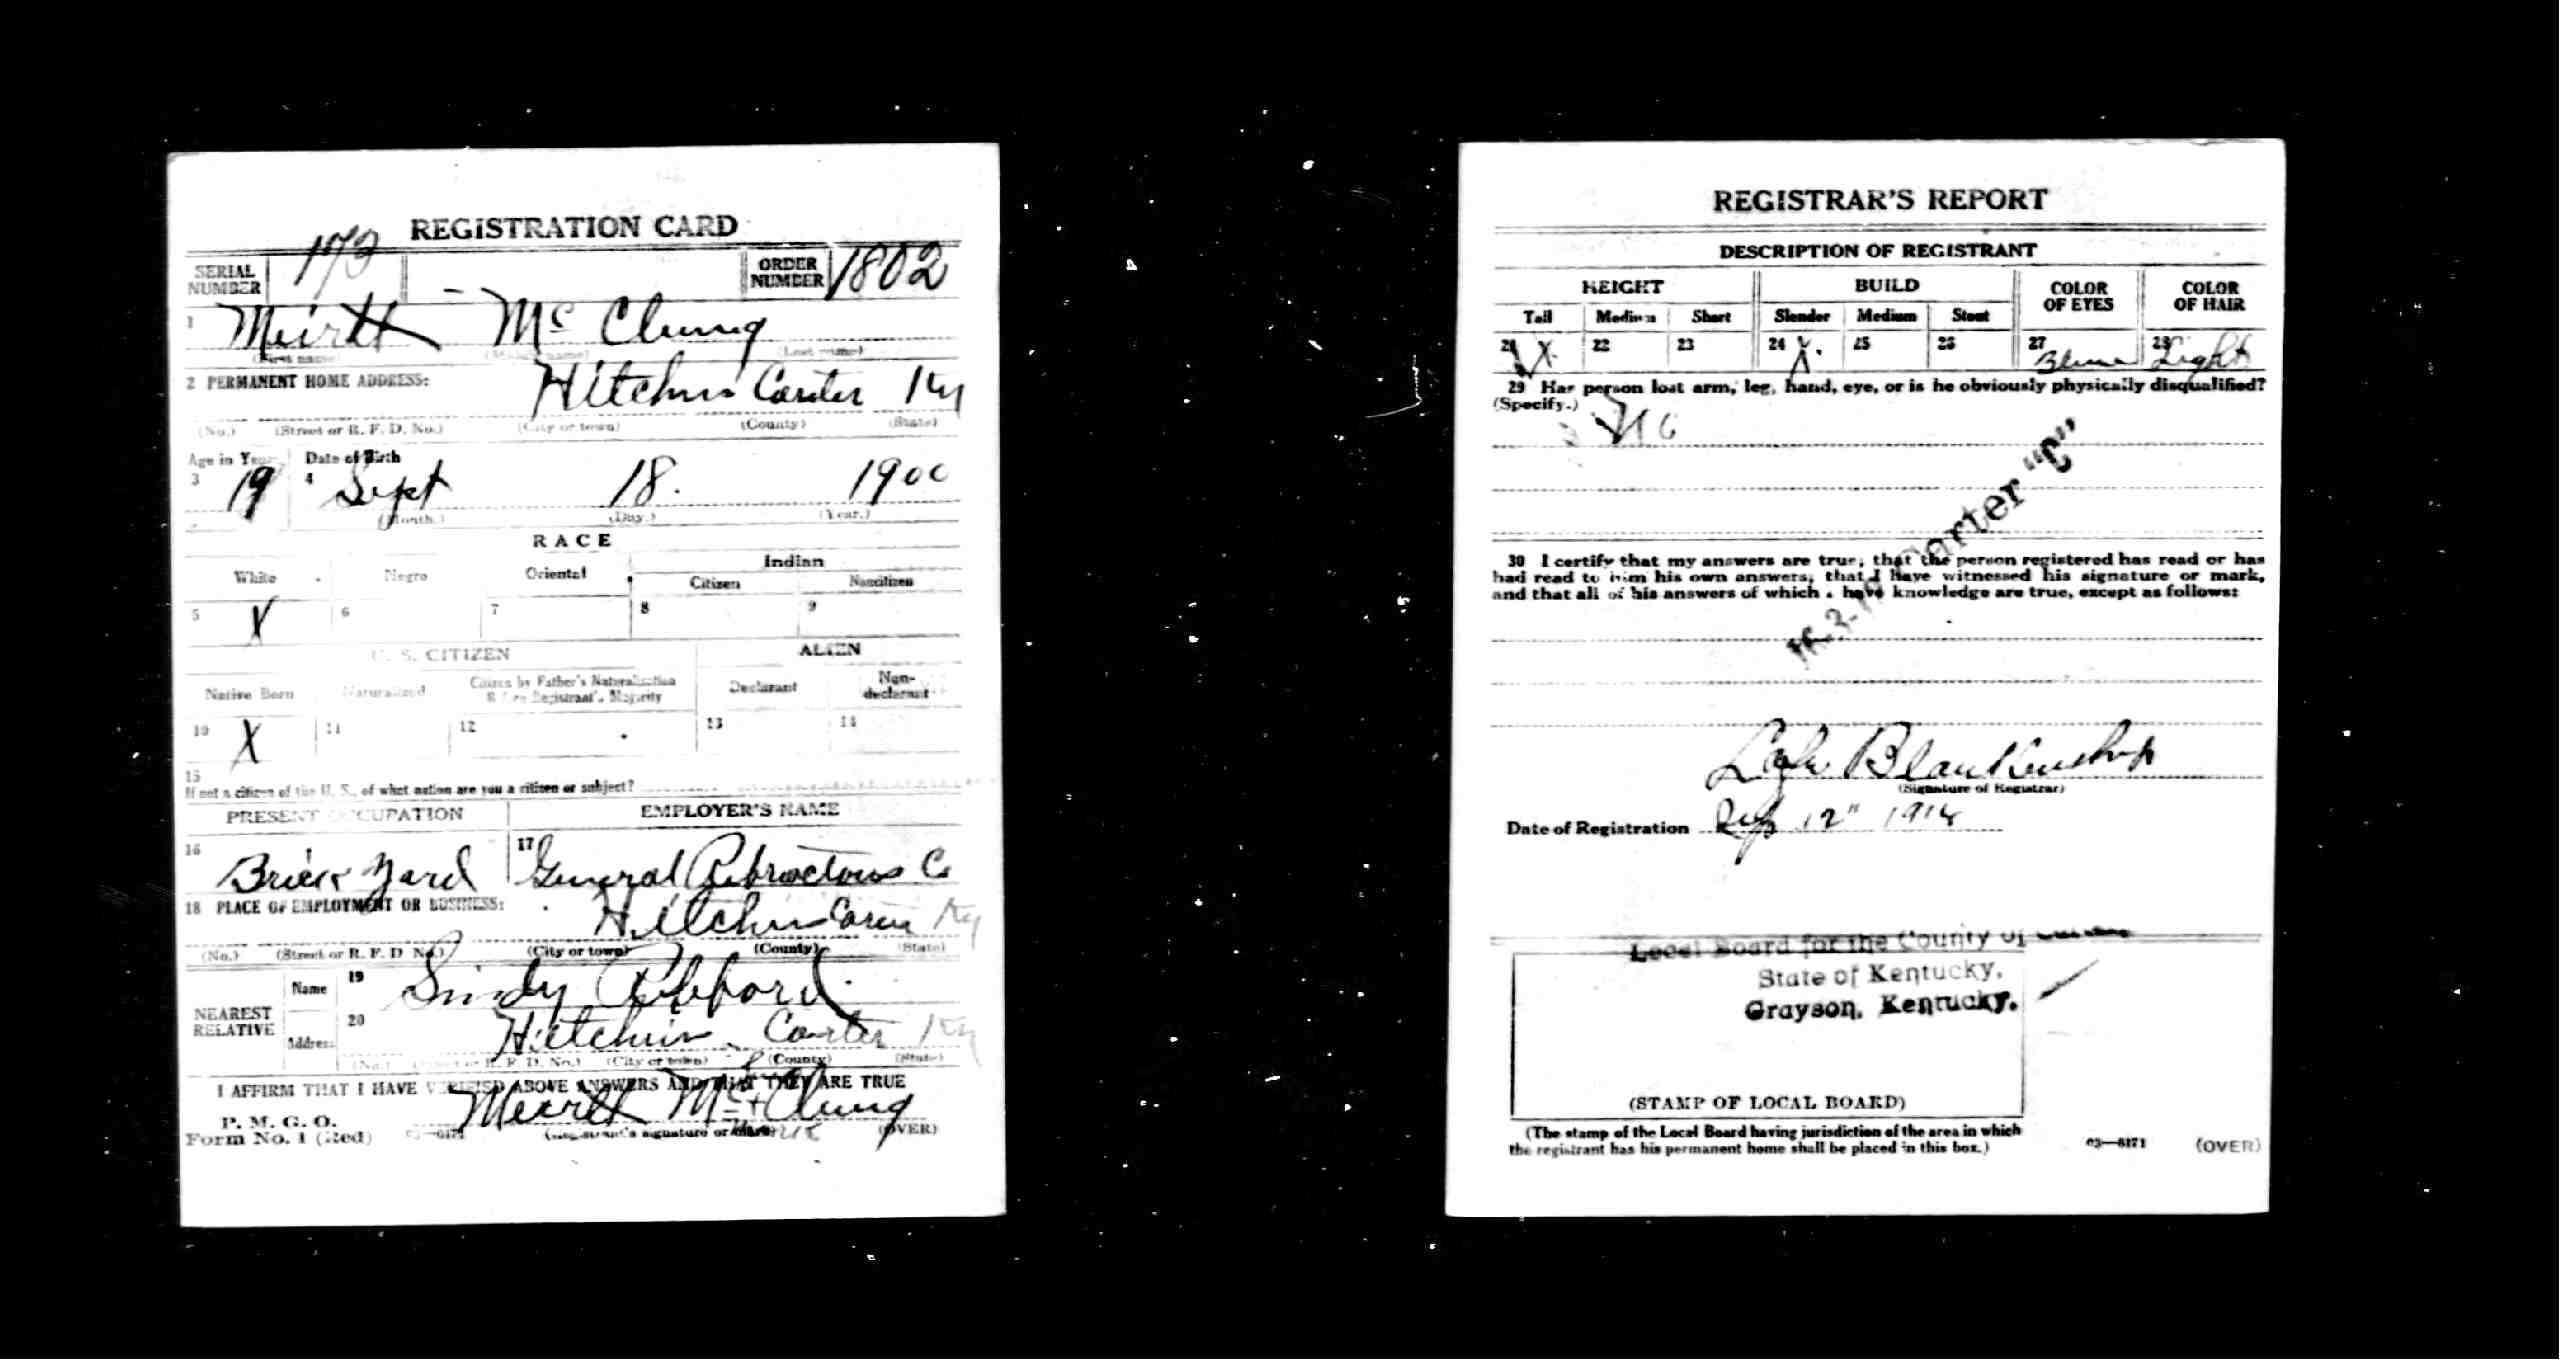 REGISTRATION CARD
SERIAL NUMBER 173 ORDER NUMBER 1802
1 Meirtt Mc Clung
(First name) (Middle name) (Last name)
2 PERMANENT HOME ADDRESS:
Hitchins Carter Ky
(No.) (Street or R. F. D. No.) (City or town) (County) (State)
Age in Years Date of Birth
3 19 4 Sept 18. 1900
(Month.) (Day.) (Year.)
RACE
White Negro Oriental Indian
Citizen Noncitizen
5 X 6 7 8 9
U. S. CITIZEN ALIEN
Native Born Naturalized Citizen by Father's Naturalization Before Registrant's Majority Declarant Non-declarant
10 X 11 12 13 14
15
If not a citizen of the U. S., of what nation are you a citizen or subject?
PRESENT OCCUPATION EMPLOYER'S NAME
16 Brick Yard 17 General Refractories Co
18 PLACE OF EMPLOYMENT OR BUSINESS:
Hitchins Carter Ky
(No.) (Street or R. F. D. No.) (City or town) (County) (State)
NEAREST RELATIVE Name 19
Address 20 Hitchins Carter Ky
(No.) (Street or R. F. D. No.) (City or town) (County) (State)
I AFFIRM THAT I HAVE VERIFIED ABOVE ANSWERS AND THAT THEY ARE TRUE
P. M. G. O.
Form No. 1 (Red) 03—6171 Meirtt Mc Clung
(Registrant's signature or mark) (OVER)
REGISTRAR'S REPORT
DESCRIPTION OF REGISTRANT
HEIGHT BUILD COLOR OF EYES COLOR OF HAIR
Tall Medium Short Slender Medium Stout
21 X 22 23 24 X. 25 26 27 Blue 28 Light
29 Has person lost arm, leg, hand, eye, or is he obviously physically disqualified?
(Specify.)
No
Carter "C"
30 I certify that my answers are true; that the person registered has read or has
had read to him his own answers; that I have witnessed his signature or mark,
and that all of his answers of which I have knowledge are true, except as follows:
Blankenship
(Signature of Registrar)
Date of Registration Sep 12" 1918
Local Board for the County of
State of Kentucky.
Grayson, Kentucky.
(STAMP OF LOCAL BOARD)
(The stamp of the Local Board having jurisdiction of the area in which
the registrant has his permanent home shall be placed in this box.)
03—6171 (OVER)